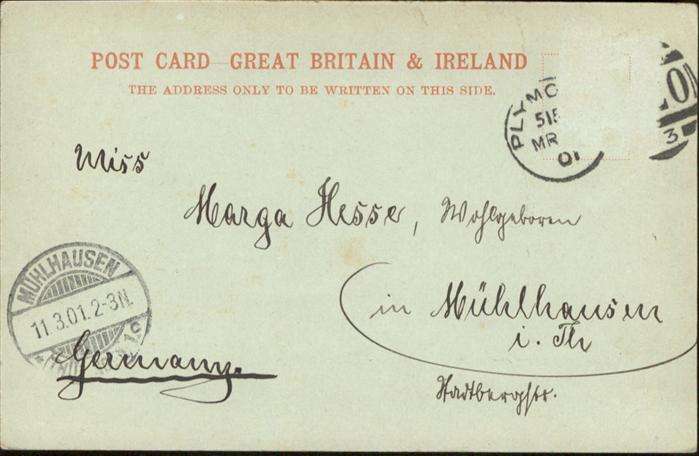 POST CARD GREAT BRITAIN & IRELAND
THE ADDRESS ONLY TO BE WRITTEN ON THIS SIDE.
PLYMO
515
MR
01
0
3
Miss
Marga Hesse, Wohlgeboren
MÜHLHAUSEN
11.3.01.2-3N.
in Mühlhausen
i. Th
Germany.
Stadtbergstr.